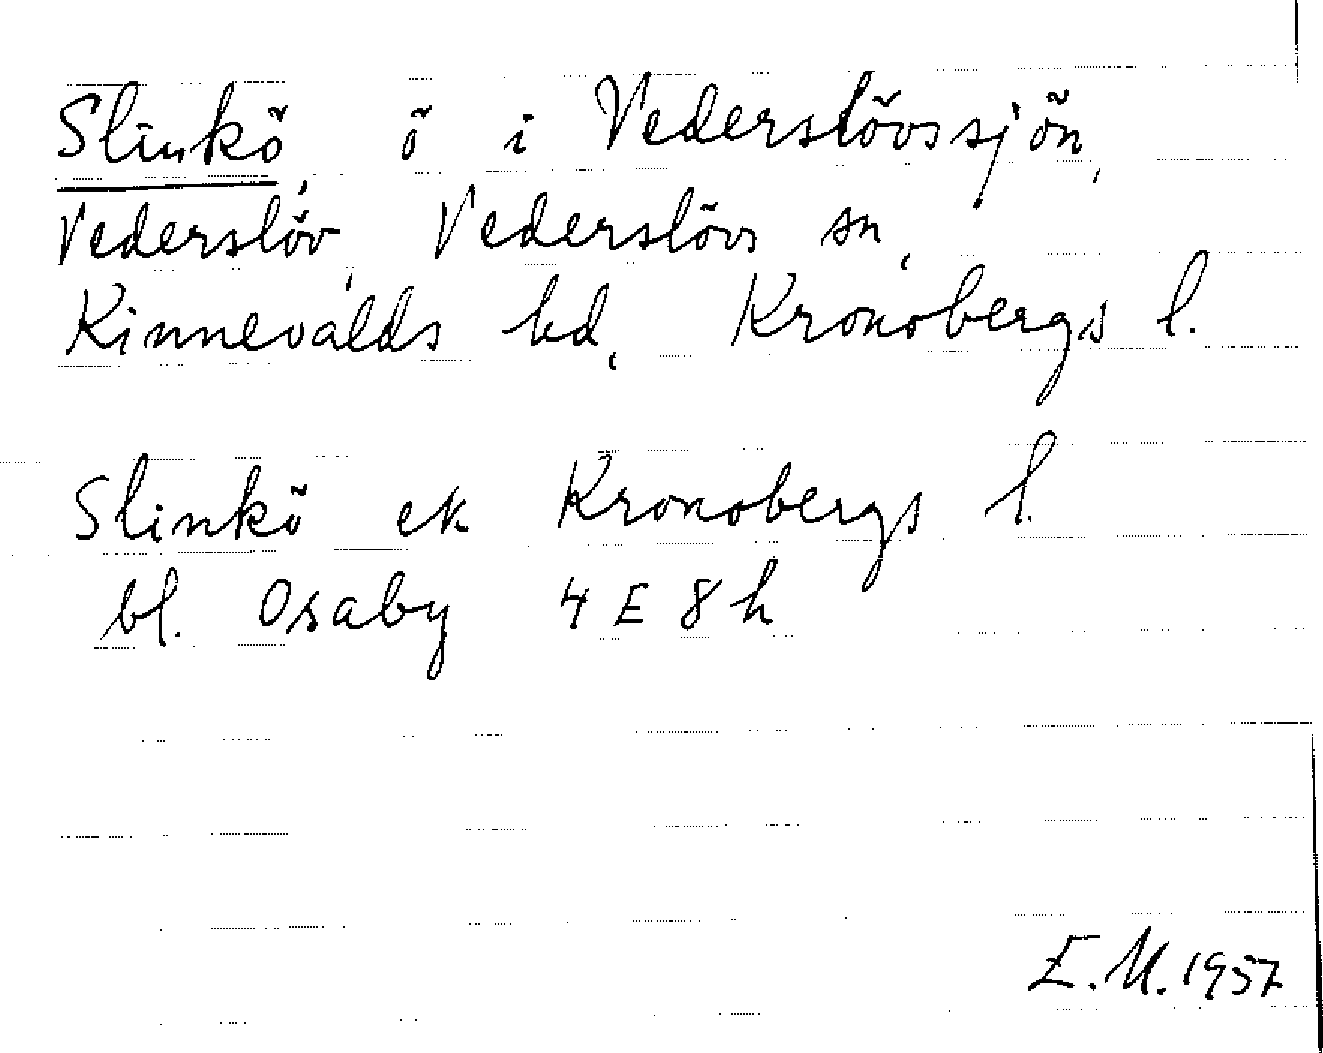 Slinkö, ö i Vederslövssjön,
Vederslöv, Vederslövs sn,
Kinnevalds hd, Kronobergs l.
Slinkö ek Kronobergs l.
bl. Osaby 4 E 8 h
E.M. 1957